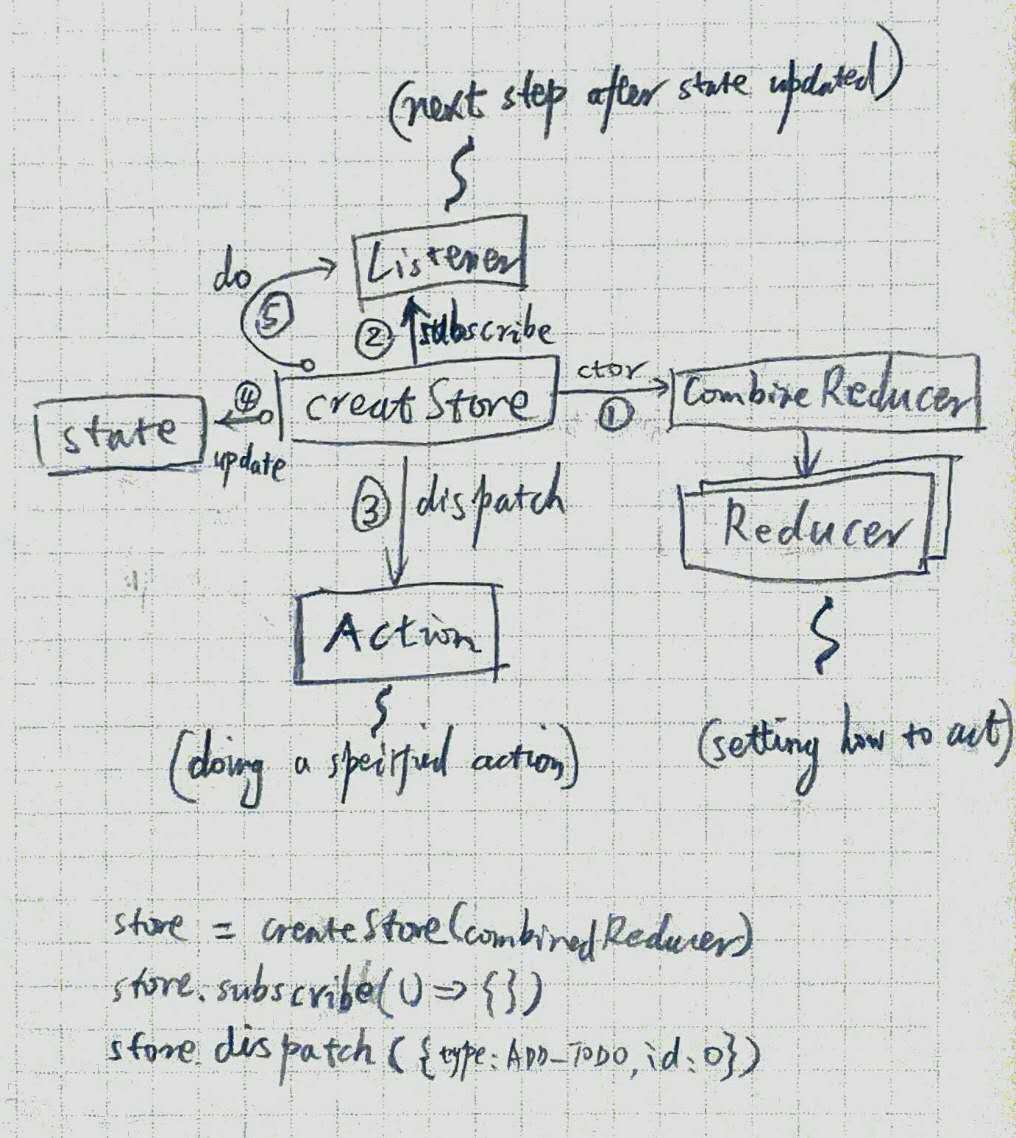 (next step after state updated)
Listener
do
⑤
② subscribe
ctor
①
creatStore
CombineReducer
④
state
update
③ dispatch
Reducer
Action
(doing a specified action)
(setting how to act)
store = createStore(combinedReducer)
store.subscribe(() => {})
store.dispatch({type: ADD_TODO, id: 0})